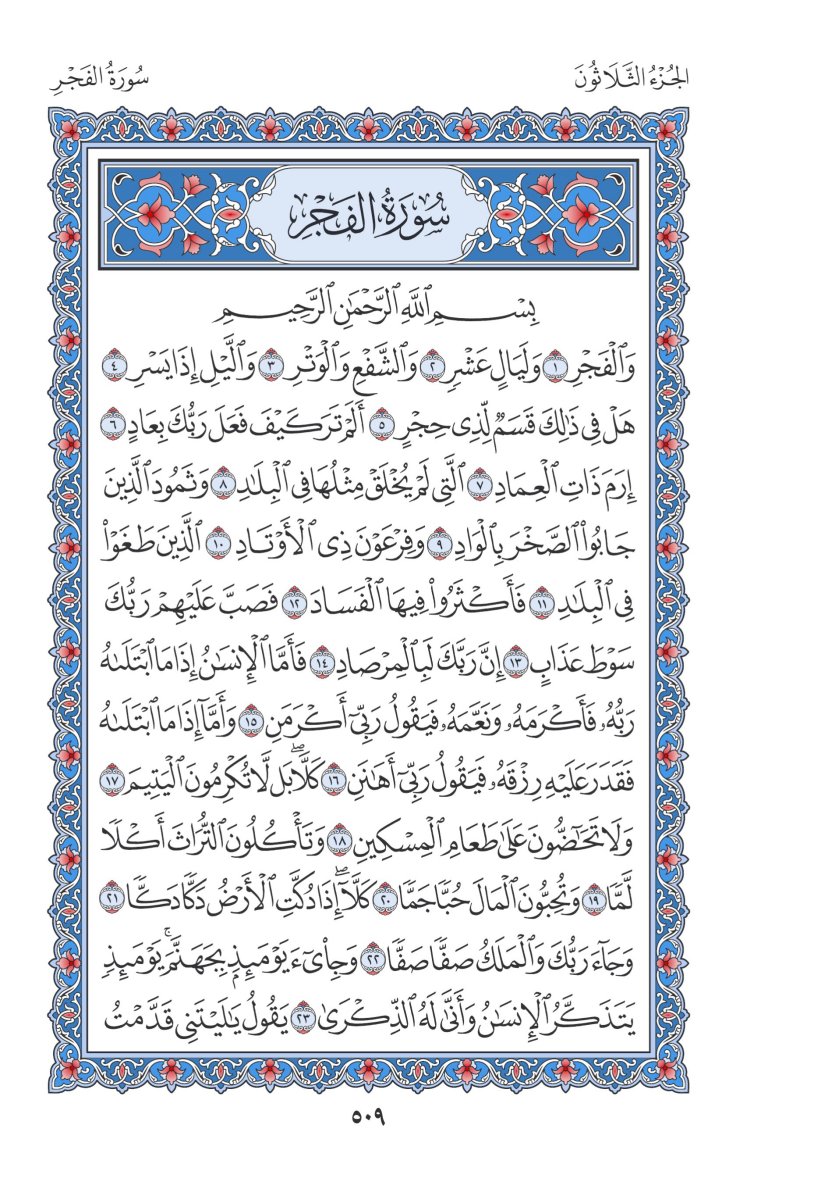 الجُزْءُ الثَّلَاثُونَ
سُورَةُ الفَجْرِ
سُورَةُ الفَجْرِ
بِسْمِ ٱللَّهِ ٱلرَّحْمَٰنِ ٱلرَّحِيمِ
وَٱلْفَجْرِ ١ وَلَيَالٍ عَشْرٍ ٢ وَٱلشَّفْعِ وَٱلْوَتْرِ ٣ وَٱلَّيْلِ إِذَا يَسْرِ ٤
هَلْ فِى ذَٰلِكَ قَسَمٌ لِّذِى حِجْرٍ ٥ أَلَمْ تَرَ كَيْفَ فَعَلَ رَبُّكَ بِعَادٍ ٦
إِرَمَ ذَاتِ ٱلْعِمَادِ ٧ ٱلَّتِى لَمْ يُخْلَقْ مِثْلُهَا فِى ٱلْبِلَٰدِ ٨ وَثَمُودَ ٱلَّذِينَ
جَابُوا۟ ٱلصَّخْرَ بِٱلْوَادِ ٩ وَفِرْعَوْنَ ذِى ٱلْأَوْتَادِ ١٠ ٱلَّذِينَ طَغَوْا۟
فِى ٱلْبِلَٰدِ ١١ فَأَكْثَرُوا۟ فِيهَا ٱلْفَسَادَ ١٢ فَصَبَّ عَلَيْهِمْ رَبُّكَ
سَوْطَ عَذَابٍ ١٣ إِنَّ رَبَّكَ لَبِٱلْمِرْصَادِ ١٤ فَأَمَّا ٱلْإِنسَٰنُ إِذَا مَا ٱبْتَلَىٰهُ
رَبُّهُۥ فَأَكْرَمَهُۥ وَنَعَّمَهُۥ فَيَقُولُ رَبِّىٓ أَكْرَمَنِ ١٥ وَأَمَّآ إِذَا مَا ٱبْتَلَىٰهُ
فَقَدَرَ عَلَيْهِ رِزْقَهُۥ فَيَقُولُ رَبِّىٓ أَهَٰنَنِ ١٦ كَلَّا ۖ بَل لَّا تُكْرِمُونَ ٱلْيَتِيمَ ١٧
وَلَا تَحَٰٓضُّونَ عَلَىٰ طَعَامِ ٱلْمِسْكِينِ ١٨ وَتَأْكُلُونَ ٱلتُّرَاثَ أَكْلًا
لَّمًّا ١٩ وَتُحِبُّونَ ٱلْمَالَ حُبًّا جَمًّا ٢٠ كَلَّآ ۖ إِذَا دُكَّتِ ٱلْأَرْضُ دَكًّا دَكًّا ٢١
وَجَآءَ رَبُّكَ وَٱلْمَلَكُ صَفًّا صَفًّا ٢٢ وَجِا۟ىٓءَ يَوْمَئِذٍۭ بِجَهَنَّمَ ۚ يَوْمَئِذٍ
يَتَذَكَّرُ ٱلْإِنسَٰنُ وَأَنَّىٰ لَهُ ٱلذِّكْرَىٰ ٢٣ يَقُولُ يَٰلَيْتَنِى قَدَّمْتُ
٥٠٩